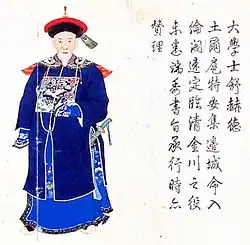 大學士舒赫德
土爾扈特安集邊城命入
綸閣遄定臨清金川之役
未悉端委書旨承行時亦
贊理